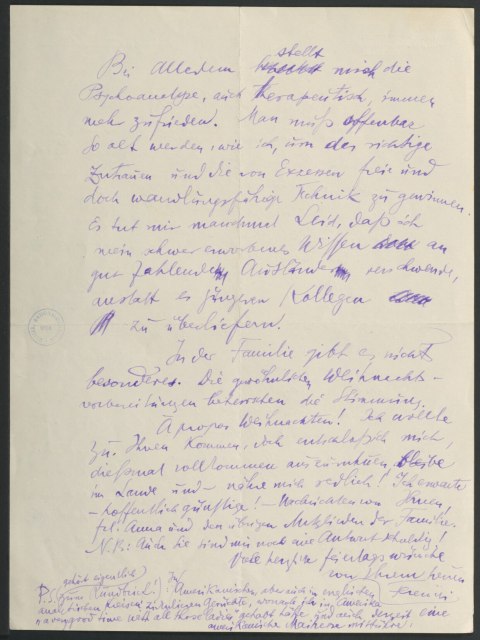 Bei alledem stellt mich die
Psychoanalyse, auch therapeutisch, immer
mehr zufrieden. Man muß offenbar
so alt werden, wie ich, um das richtige
Zutrauen und die von Exzessen freie und
doch wandlungsfähige Technik zu gewinnen.
Es tut mir manchmal Leid, daß ich
mein schwer erworbenes Wissen an
gut zahlende Ausländer verschwende,
anstatt es jüngeren Kollegen
zu überliefern.
In der Familie gibt es nichts
besonderes. Die gewöhnlichen Weihnachts-
vorbereitungen beherrschen die Stimmung.
À propos Weihnachten! Ich wollte
zu Ihnen kommen, doch entschloß ich mich,
diesmal vollkommen auszuruhen, bleibe
im Lande und nähre mich redlich! Ich erwarte
- hoffentlich günstige! - Nachrichten von Ihnen,
Frl. Anna und den übrigen Mitgliedern der Familie.
N.B.: Auch Sie sind mir noch eine Antwort schuldig!
Viele herzliche Feiertagswünsche
von Ihrem treuen
Ferenczi
gehört eigentlich
P.S. zum Rundbrief! In Amerikanischen, aber auch in englischen
analytischen Kreisen zirkulieren Gerüchte, wonach ich in Amerika
„a very good time with all those ladies gehabt hätte, und auch derzeit eine
amerikanische Maitresse mitführe!